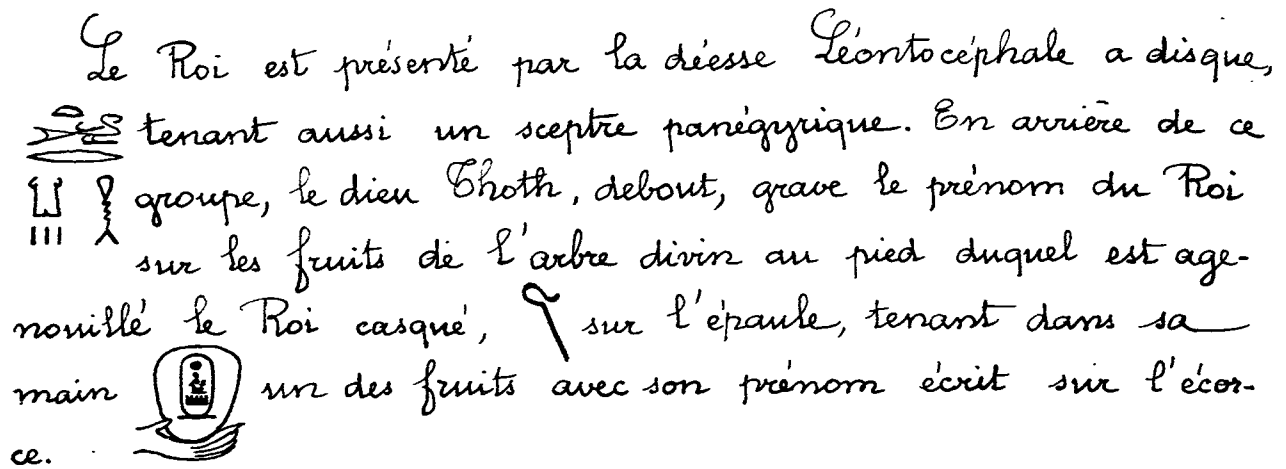 Le Roi est présenté par la déesse Léontocéphale a disque,
tenant aussi un sceptre panégyrique. En arrière de ce
groupe, le dieu Thoth, debout, grave le prénom du Roi
sur les fruits de l'arbre divin au pied duquel est age-
nouillé le Roi casqué, sur l'épaule, tenant dans sa
main un des fruits avec son prénom écrit sur l'écor-
ce.